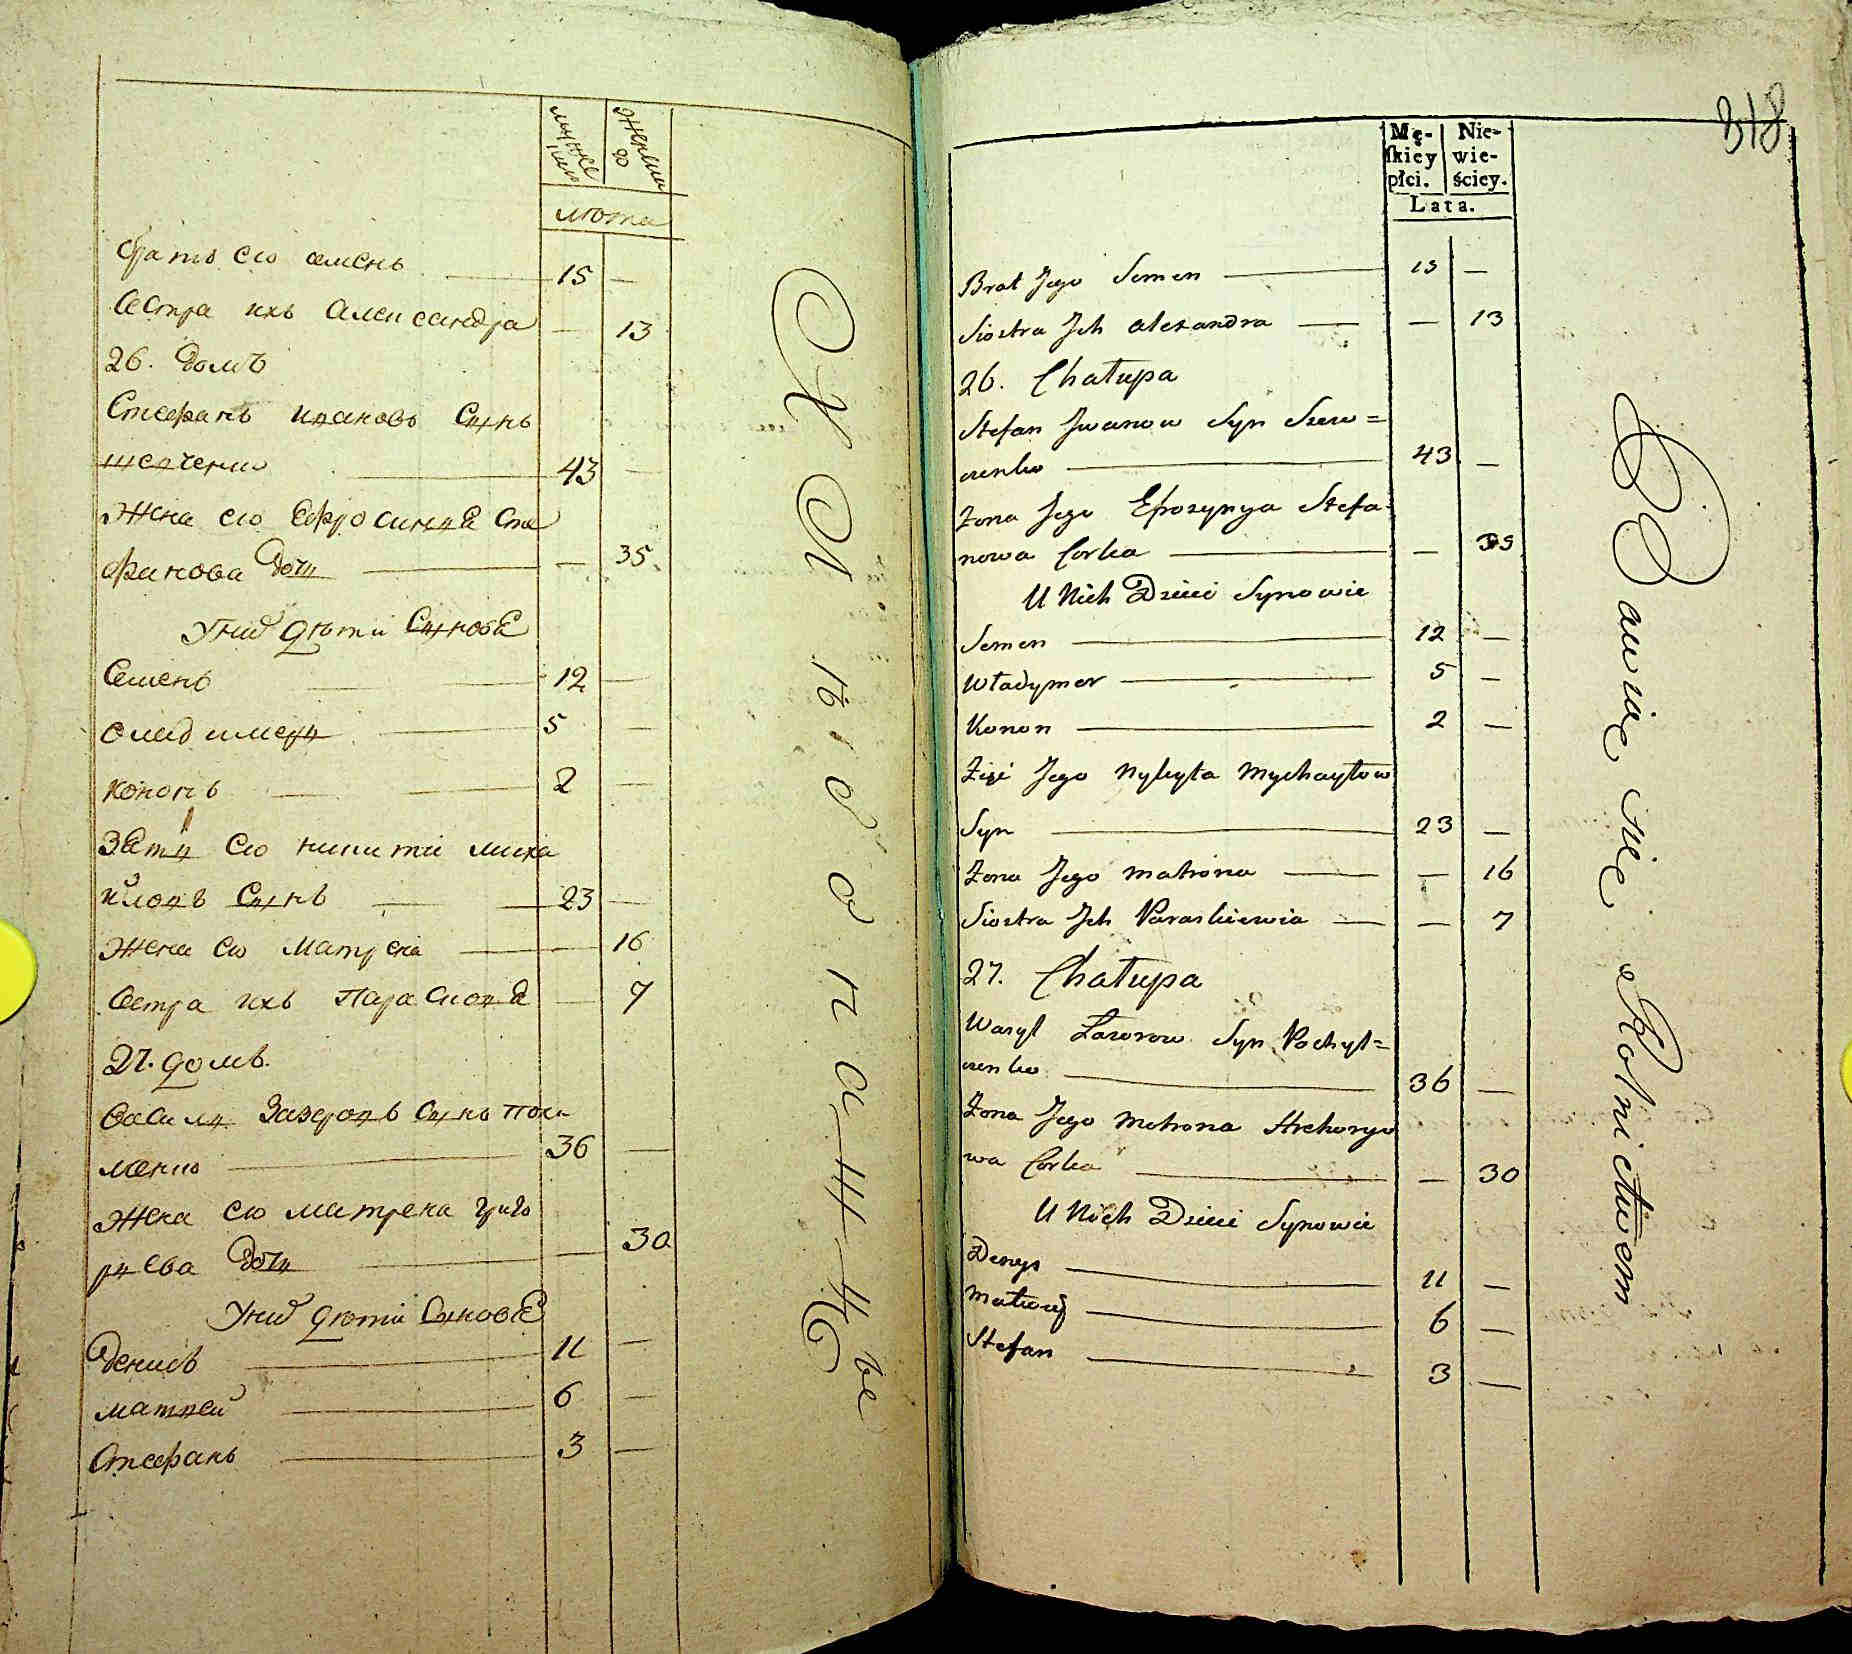 мужес
кио
женски
го
люта
братъ его семенъ 15 —
сестра ихъ александра — 13
26. домъ
Стефанъ ивановъ сынъ
шевченко 43 —
жена его Ефросиния Сте
фанова дочь — 35
У них дети Сынове
Семенъ 12 —
владимеръ 5 —
кононъ 2 —
зять его никити миха
йловъ сынъ 23 —
жена его матрена — 16
сестра ихъ парасковя — 7
27. домъ
василь Лазеровъ сынъ похи
ленко 36 —
жена его матрена григо
рьева дочь — 30
У них дети Сынове
денисъ 11 —
матвей 6 —
стефанъ 3 —
Хлебопашные
318
Mę-
skiey
płci.
Nie-
wie-
ściey.
Lata.
Brat Jego Semen 15 —
Siostra Jch alexandra — 13
26. Chałupa
Stefan Jwanow Syn Szew=
czenko 43 —
Żona Jego Efrozynya Stefa-
nowa Corka — 35
U Nich Dzieci Synowie
Semen 12 —
Władymer 5 —
Konon 2 —
Zięć Jego Nykyta Mychayłow
Syn 23 —
Żona Jego matrona — 16
Siostra Jch Paraskiewia — 7
27. Chałupa
Wasyl Łazorow Syn Pochył=
czenko 36 —
Żona Jego Motrona Hrehoryo
wa Corka — 30
U Nich Dzieci Synowie
Denys 11 —
Matwey 6 —
Stefan 3 —
Bawią się Rolnictwem